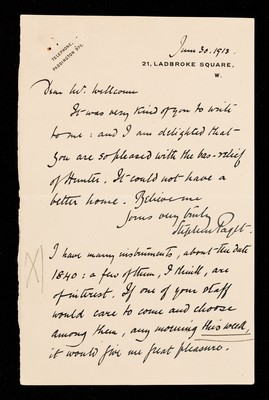 TELEPHONE,
PADDINGTON
June 30. 1913.
21, LADBROKE SQUARE,
W.
Dear Mr. Wellcome
It was very kind of you to write
to me: and I am delighted that
you are so pleased with the bas-relief
of Hunter. It could not have a
better home. Believe me
Yours very truly
Stephen Paget.
I have many instruments, about the date
1840: a few of them, I think, are
of interest. If one of your staff
would care to come and choose
among them, any morning this week,
it would give me great pleasure.